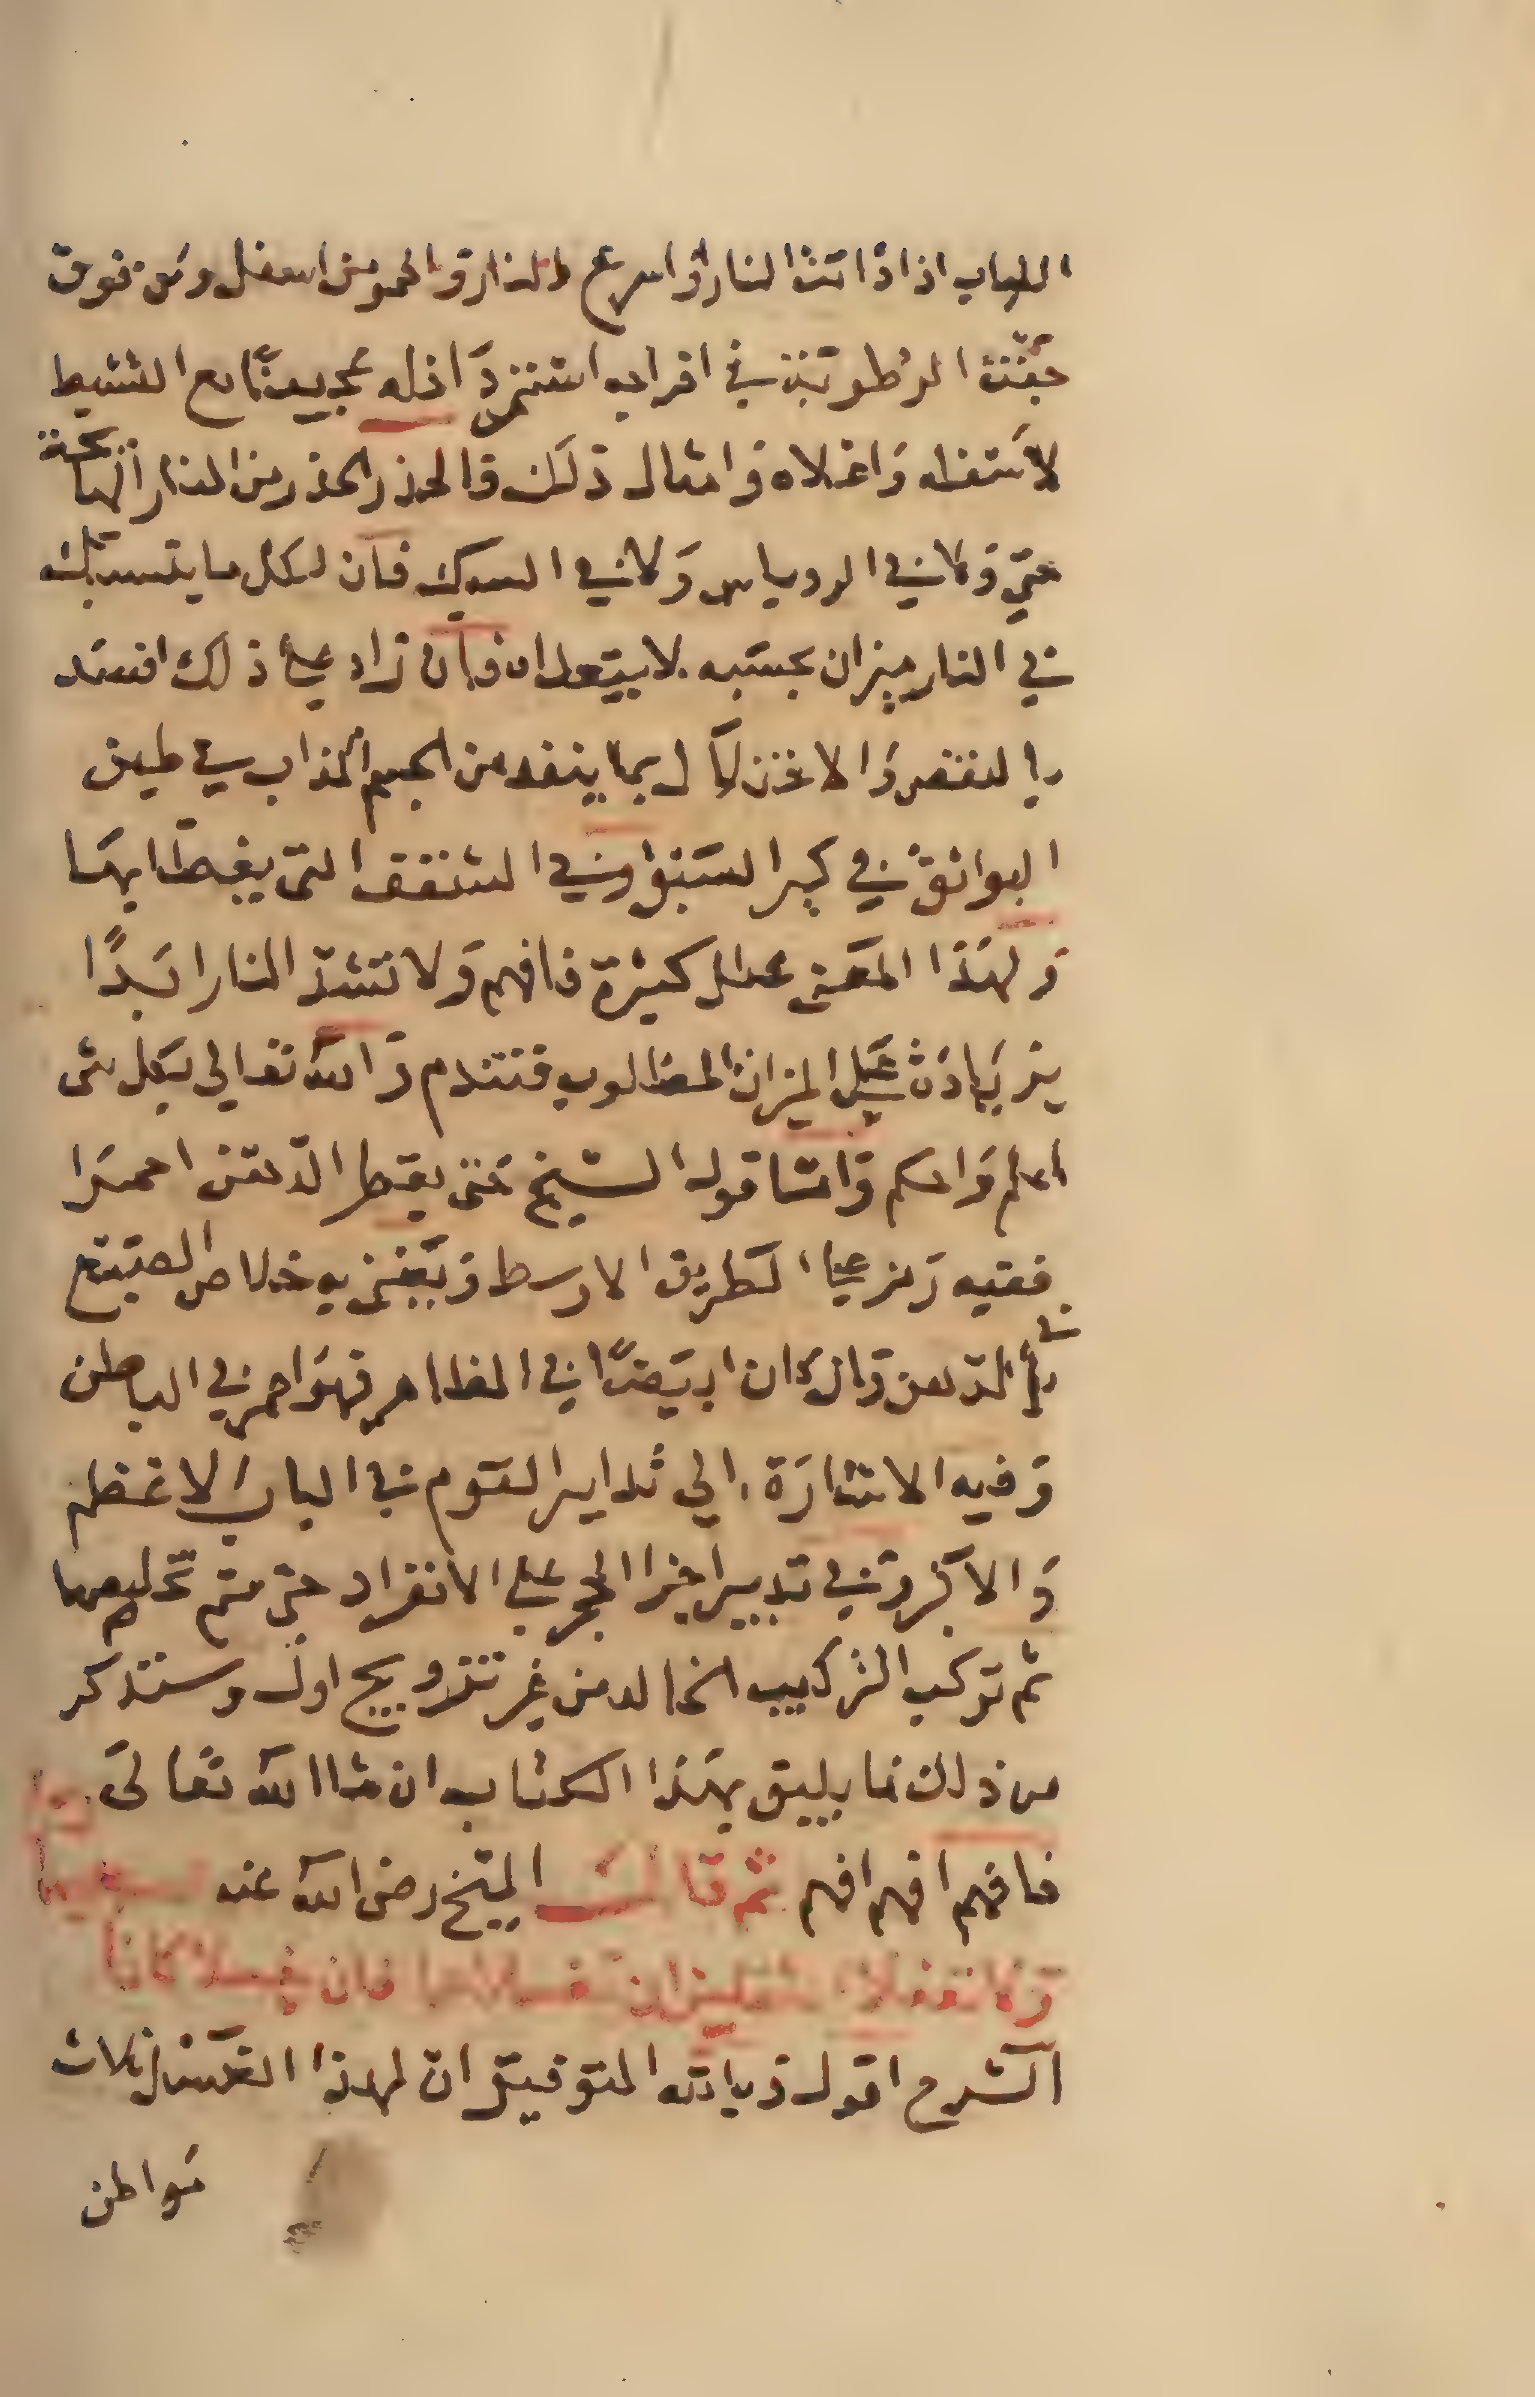 اللهاب اذا ذاتت النار واسرع والحمو من اسفل ومن فوق
الرطوبة في اقرابه
لاسفله واعلاه وامثال ذلك فالحذر الحذر من النار
حمي ولا في الروباس ولا في السبك فان لكل ما يتسبك
في النار ميزان بحسبه لا يتعداه فان زاد علي ذلك افسد
من الجسم المذاب في طين
البوانق في كبر السبق وفي الشقف التي يغطا بها
ولهذا المعني علل كثيرة فافهم ولا تشد النار ابدًا
بزيادة علي الميزان المطلوب فتندم والله تعالي بكل شي
اعلم واحكم واما قول الشيخ حتي يقطر الدهن احمرا
ففيه رمز علي الطريق الاوسط ويعني به خلاص الصبغ
في الدهن وان كان ابيضًا في الظاهر فهو احمر في الباطن
وفيه الاشارة الي تدابير القوم في الباب الاعظم
والاكبر وفي تدبير اجزا الحجر علي الانفراد حتي يتم تخليصها
ثم تركب التركيب الخالد من غير تزويج اول وسنذكر
من ذلك ما يليق بهذا الكتاب ان شا الله تعالى
فافهم افهم افهم ثم قال الشيخ رضي الله عنه
ولا تغفلا فان غسلا كانا
الشرح اقول وبالله التوفيق ان لهذا الغسل ثلاث
مواطن